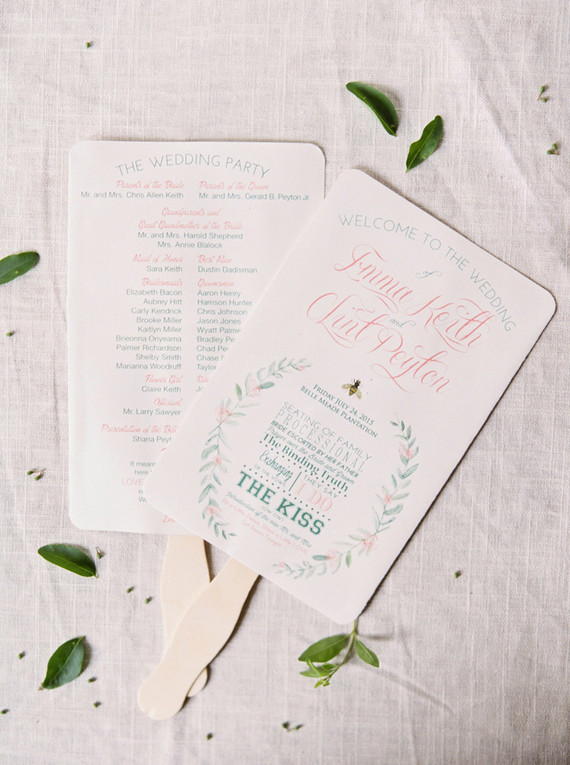 THE WEDDING PARTY
Parents of the Bride Parents of the Groom
Mr. and Mrs. Chris Allen Keith Mr. and Mrs. Gerald B. Peyton Jr.
Grandparents and
Great Grandmother of the Bride
Mr. and Mrs. Harold Shepherd
Mrs. Annie Blalock
Maid of Honor Best Man
Sara Keith Dustin Dadisman
Bridesmaids Groomsmen
Elizabeth Bacon Aaron Henry
Aubrey Hitt Harrison Hunter
Carly Kendrick Chris Johnson
Brooke Miller Jason Jones
Kaitlyn Miller Wyatt
Brieonna Onyerama Bradley
Palmer Richardson Chad
Shelby Smith Chase
Marianna Woodruff Taylor
Flower Girl
Claire Keith
Officiant
Mr. Larry Sawyer
Presentation of the
Shana
It means
LOVE
WELCOME TO THE WEDDING
of
Emma Keith
and
Clint Peyton
FRIDAY JULY 24, 2015
BELLE MEADE PLANTATION
SEATING OF FAMILY
PROCESSIONAL
BRIDE ESCORTED BY HER FATHER
Prayer over the Bride and Groom
The Binding Truth
Exchanging
OF THE
THEY SAY
I DO
THE KISS
Introduction of the new Mr. and Mrs.